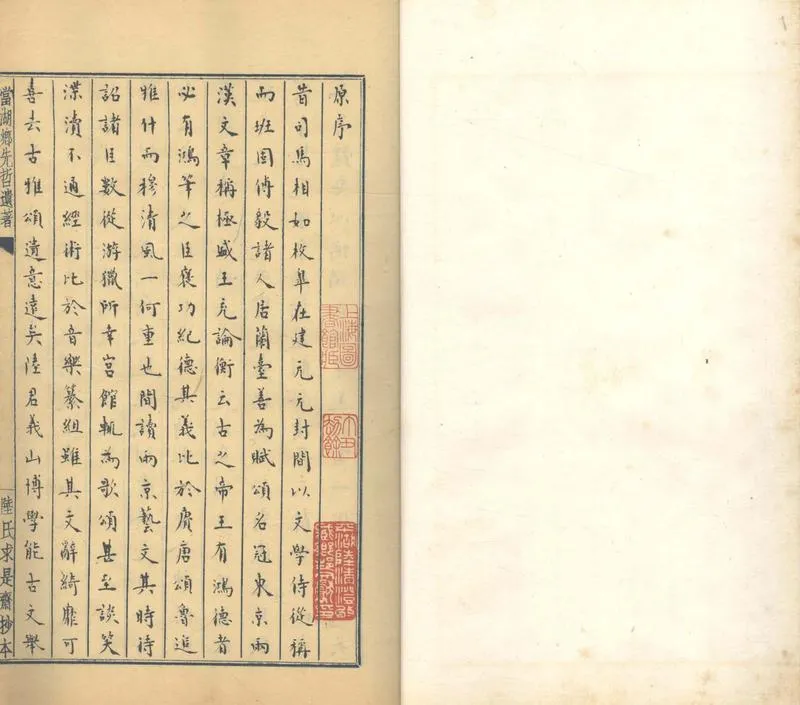 原序
昔司馬相如枚皐在建元元封間以文學侍從稱
而班固傅毅諸人居蘭臺善為賦頌名冠東京兩
漢文章稱極盛王充論衡云古之帝王有鴻德者
必有鴻筆之臣褒功紀德其義比於賡唐頌魯追
雅什而穆清風一何重也間讀兩京藝文其時待
詔諸臣數從游獵所幸宮館輒為歌頌甚至談笑
渫瀆不通經術比於音樂纂組雖其文辭綺靡可
喜去古雅頌遺意遠矣陸君義山博學能古文舉
當湖鄉先哲遺著
陸氏求是齋抄本
上海圖書館藏
平湖陸清澄